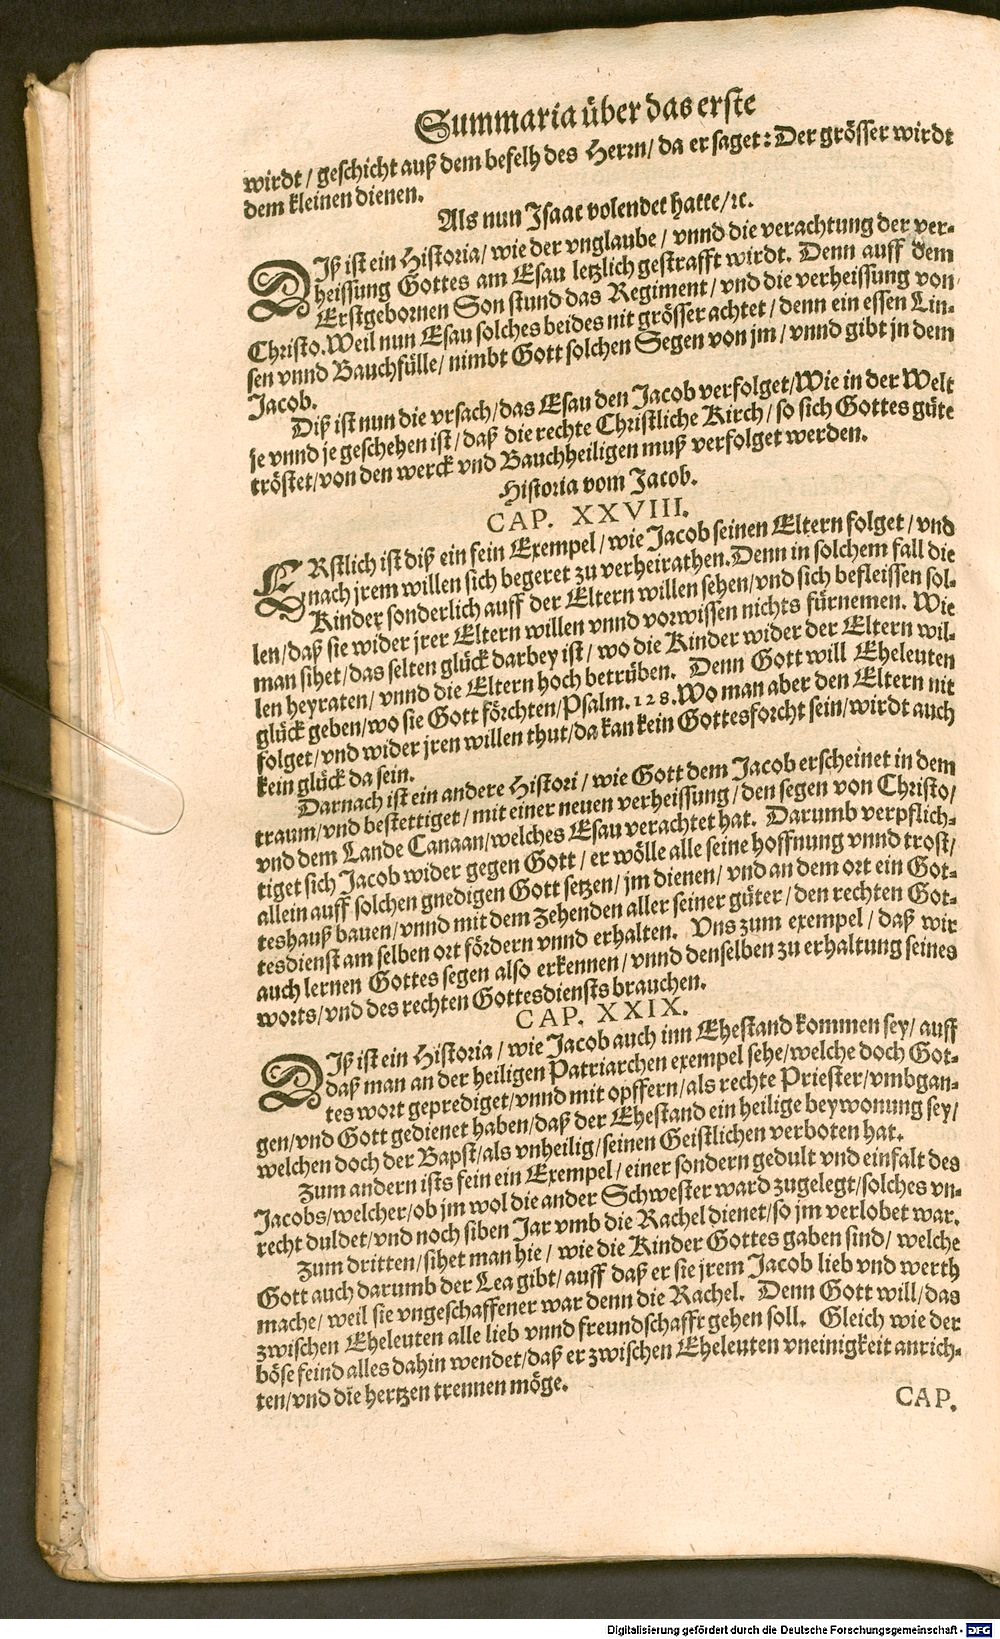 Summaria über das erste
wirdt / geschicht auß dem befelh des Herrn / da er saget: Der grösser wirdt
dem kleinen dienen.
Als nun Isaac volendet hatte / ꝛc.
DIß ist ein Historia / wie der vnglaube / vnnd die verachtung der ver-
heissung Gottes am Esau letzlich gestrafft wirdt. Denn auff dem
Erstgebornen Son stund das Regiment / vnd die verheissung von
Christo. Weil nun Esau solches beides nit grösser achtet / denn ein essen Lin-
sen vnnd Bauchfülle / nimbt Gott solchen Segen von jm / vnnd gibt jn dem
Jacob.
Diß ist nun die vrsach / das Esau den Jacob verfolget / Wie in der Welt
je vnnd je geschehen ist / daß die rechte Christliche Kirch / so sich Gottes güte
tröstet / von den werck vnd Bauchheiligen muß verfolget werden.
Historia vom Jacob.
CAP. XXVIII.
ERstlich ist diß ein fein Exempel / wie Jacob seinen Eltern folget / vnd
nach jrem willen sich begeret zu verheirathen. Denn in solchem fall die
Kinder sonderlich auff der Eltern willen sehen / vnd sich befleissen sol-
len / daß sie wider jrer Eltern willen vnnd vorwissen nichts fürnemen. Wie
man sihet / das selten glück darbey ist / wo die Kinder wider der Eltern wil-
len heyraten / vnnd die Eltern hoch betrüben. Denn Gott will Eheleuten
glück geben / wo sie Gott förchten / Psalm. 128. Wo man aber den Eltern nit
folget / vnd wider jren willen thut / da kan kein Gottesforcht sein / wirdt auch
kein glück da sein.
Darnach ist ein andere Histori / wie Gott dem Jacob erscheinet in dem
traum / vnd bestettiget / mit einer neuen verheissung / den segen von Christo /
vnd dem Lande Canaan / welches Esau verachtet hat. Darumb verpflich-
tiget sich Jacob wider gegen Gott / er wölle alle seine hoffnung vnnd trost /
allein auff solchen gnedigen Gott setzen / jm dienen / vnd an dem ort ein Got-
teshauß bauen / vnnd mit dem Zehenden aller seiner güter / den rechten Got-
tesdienst am selben ort fördern vnnd erhalten. Vns zum exempel / daß wir
auch lernen Gottes segen also erkennen / vnnd denselben zu erhaltung seines
worts / vnd des rechten Gottesdiensts brauchen.
CAP. XXIX.
DIß ist ein Historia / wie Jacob auch inn Ehestand kommen sey / auff
daß man an der heiligen Patriarchen exempel sehe / welche doch Got-
tes wort geprediget / vnnd mit opffern / als rechte Priester / vmbgan-
gen / vnd Gott gedienet haben / daß der Ehestand ein heilige beywonung sey /
welchen doch der Bapst / als vnheilig / seinen Geistlichen verboten hat.
Zum andern ists fein ein Exempel / einer sondern gedult vnd einfalt des
Jacobs / welcher / ob jm wol die ander Schwester ward zugelegt / solches vn-
recht duldet / vnd noch siben Jar vmb die Rachel dienet / so jm verlobet war.
Zum dritten / sihet man hie / wie die Kinder Gottes gaben sind / welche
Gott auch darumb der Lea gibt / auff daß er sie jrem Jacob lieb vnd werth
mache / weil sie vngeschaffener war denn die Rachel. Denn Gott will / das
zwischen Eheleuten alle lieb vnnd freundschafft gehen soll. Gleich wie der
böse feind alles dahin wendet / daß er zwischen Eheleuten vneinigkeit anrich-
ten / vnd die hertzen trennen möge.
CAP.
Digitalisierung gefördert durch die Deutsche Forschungsgemeinschaft - DFG